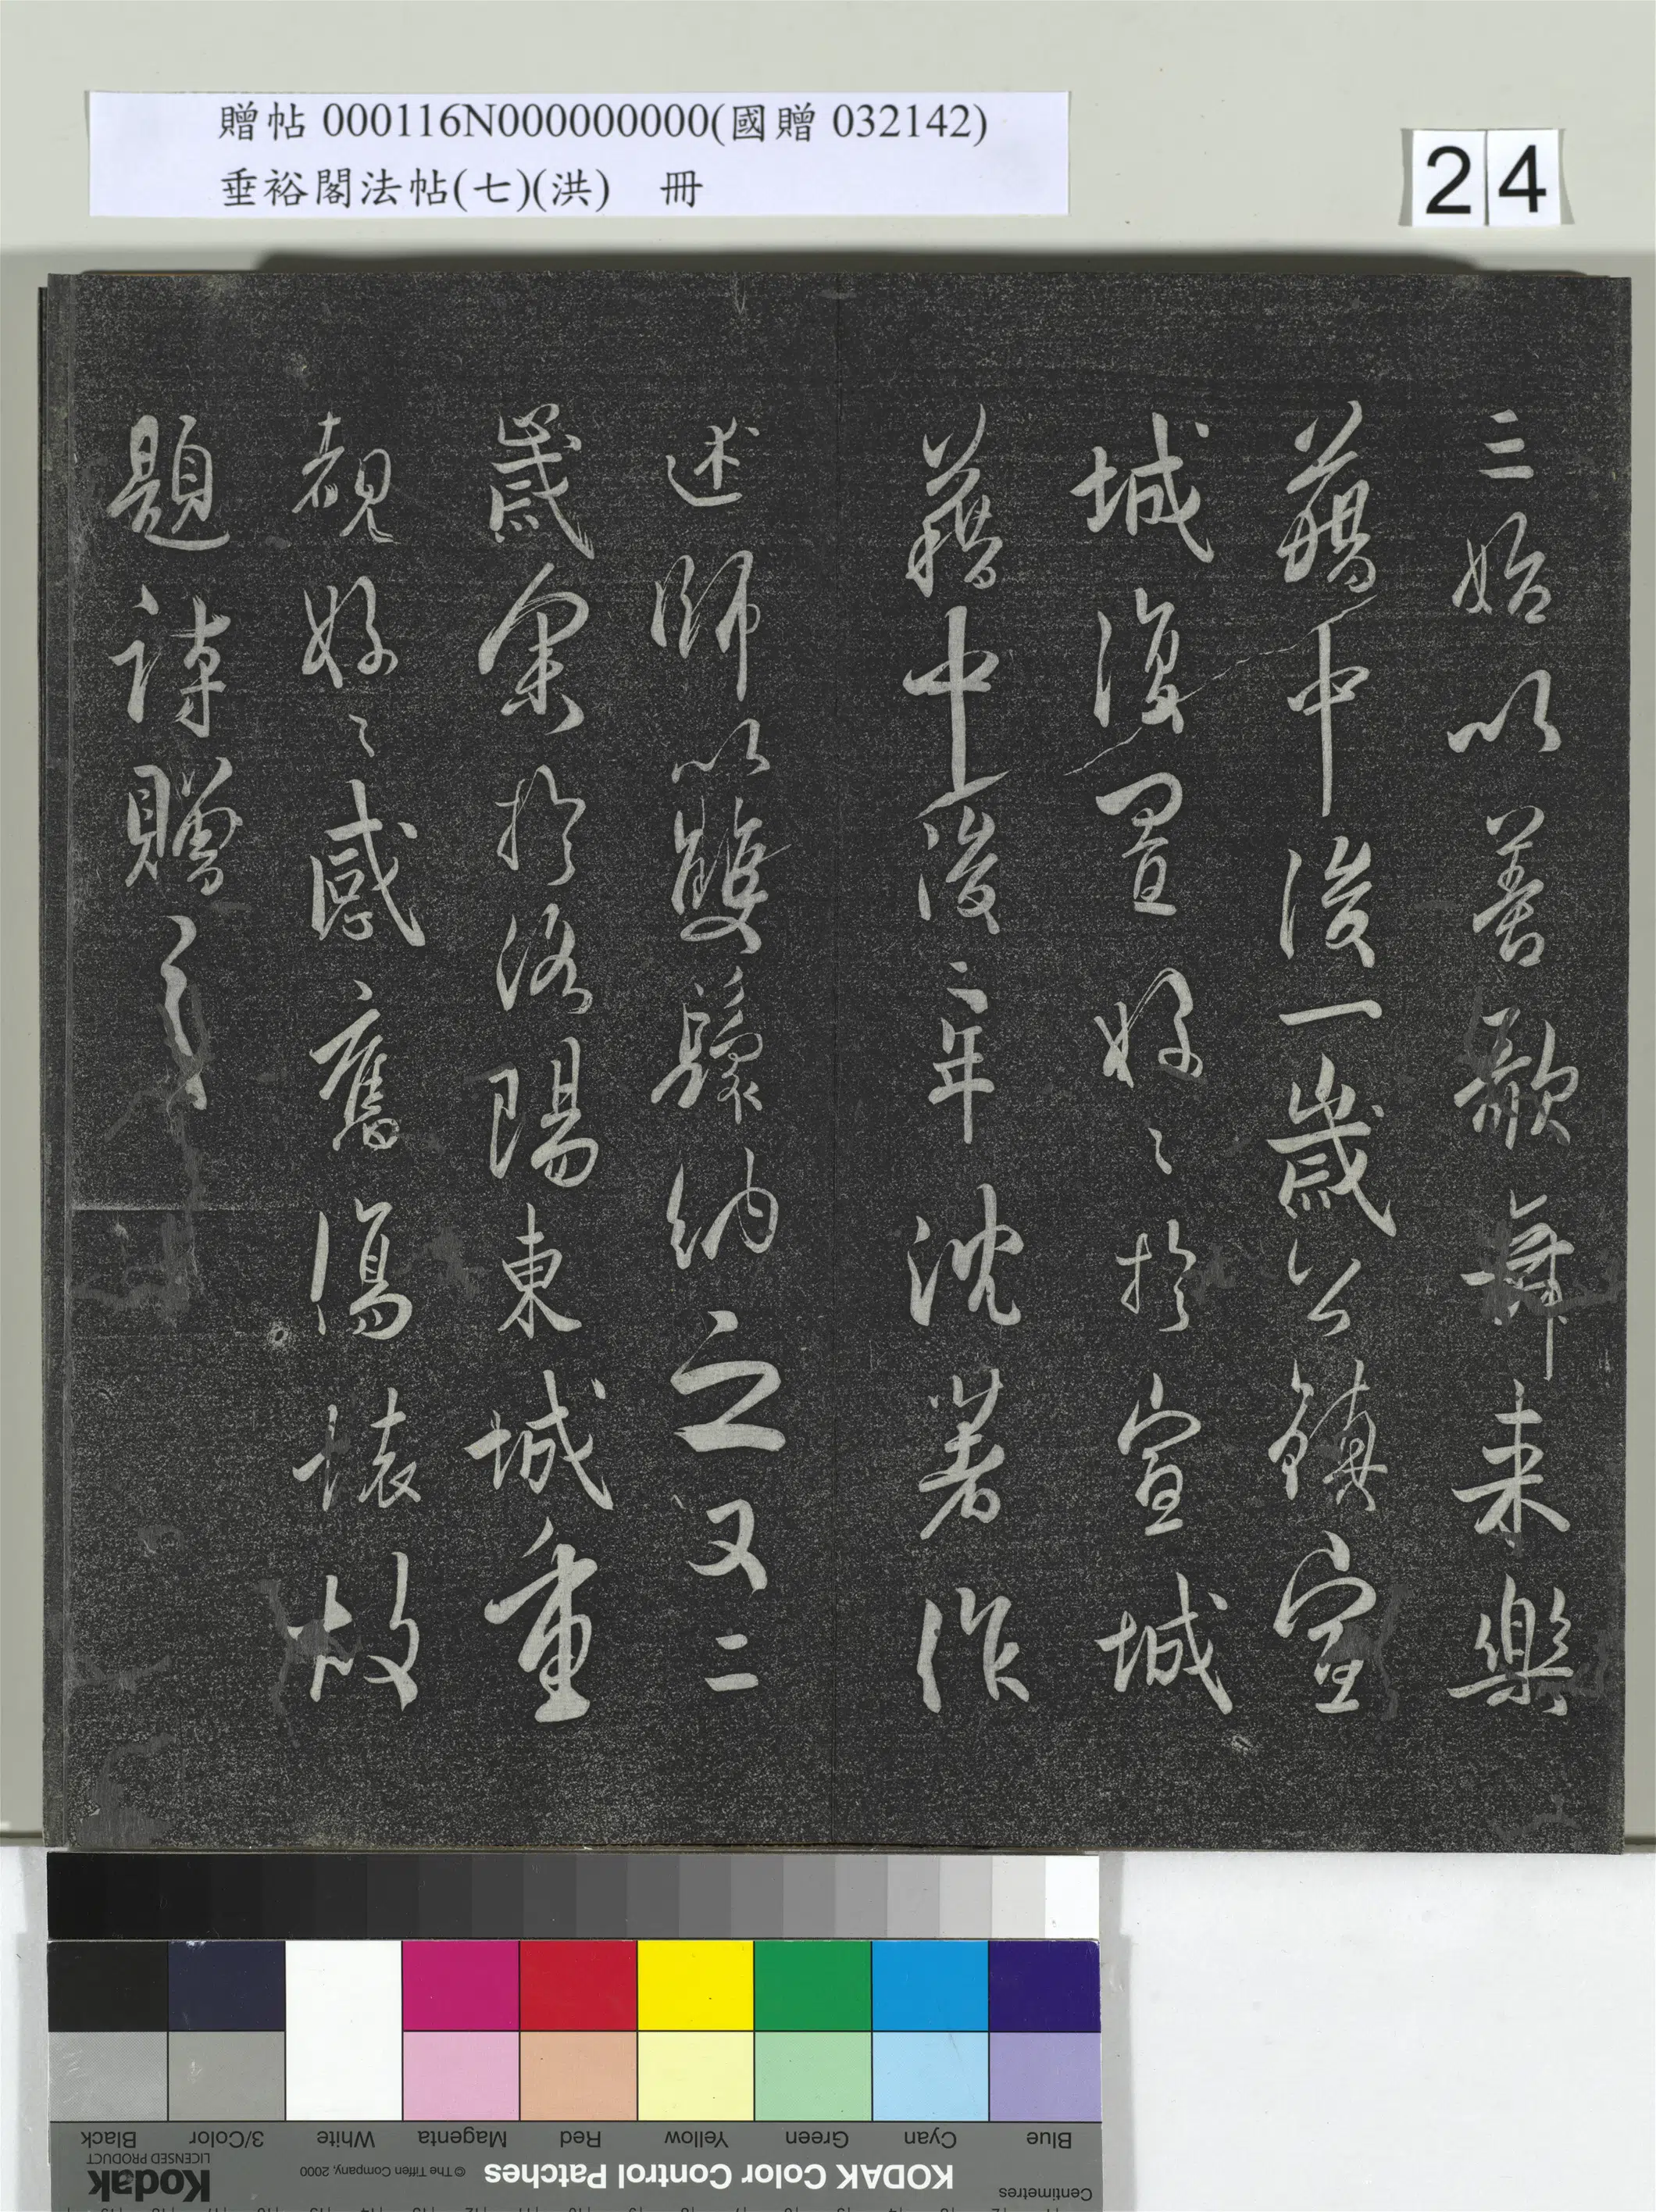 贈帖 000116N000000000(國贈 032142)
垂裕閣法帖(七)(洪) 冊
24
三始以善歌舞来樂
藉中後一歲公鎮宣
城復置好〻於宣城
藉中後二年沈著作
述師以雙鬟納之又二
歲余於洛陽東城重
覩好〻感舊傷懐故
題詩贈之
Blue
Cyan
Green
Yellow
Red
Magenta
White
3/Color
Black
Centimetres
KODAK Color Control Patches
© The Tiffen Company, 2000
Kodak
LICENSED PRODUCT